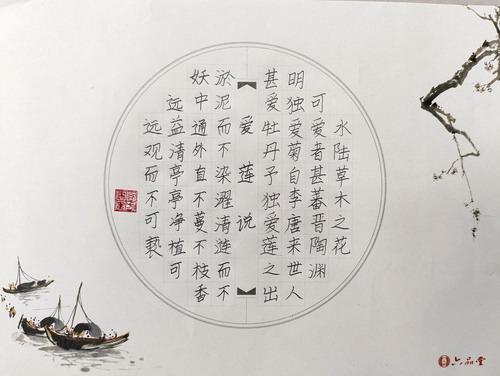 水陆草木之花
可爱者甚蕃晋陶渊
明独爱菊自李唐来世人
甚爱牡丹予独爱莲之出
【爱莲说】
淤泥而不染濯清涟而不
妖中通外直不蔓不枝香
远益清亭亭净植可
远观而不可亵
六品堂